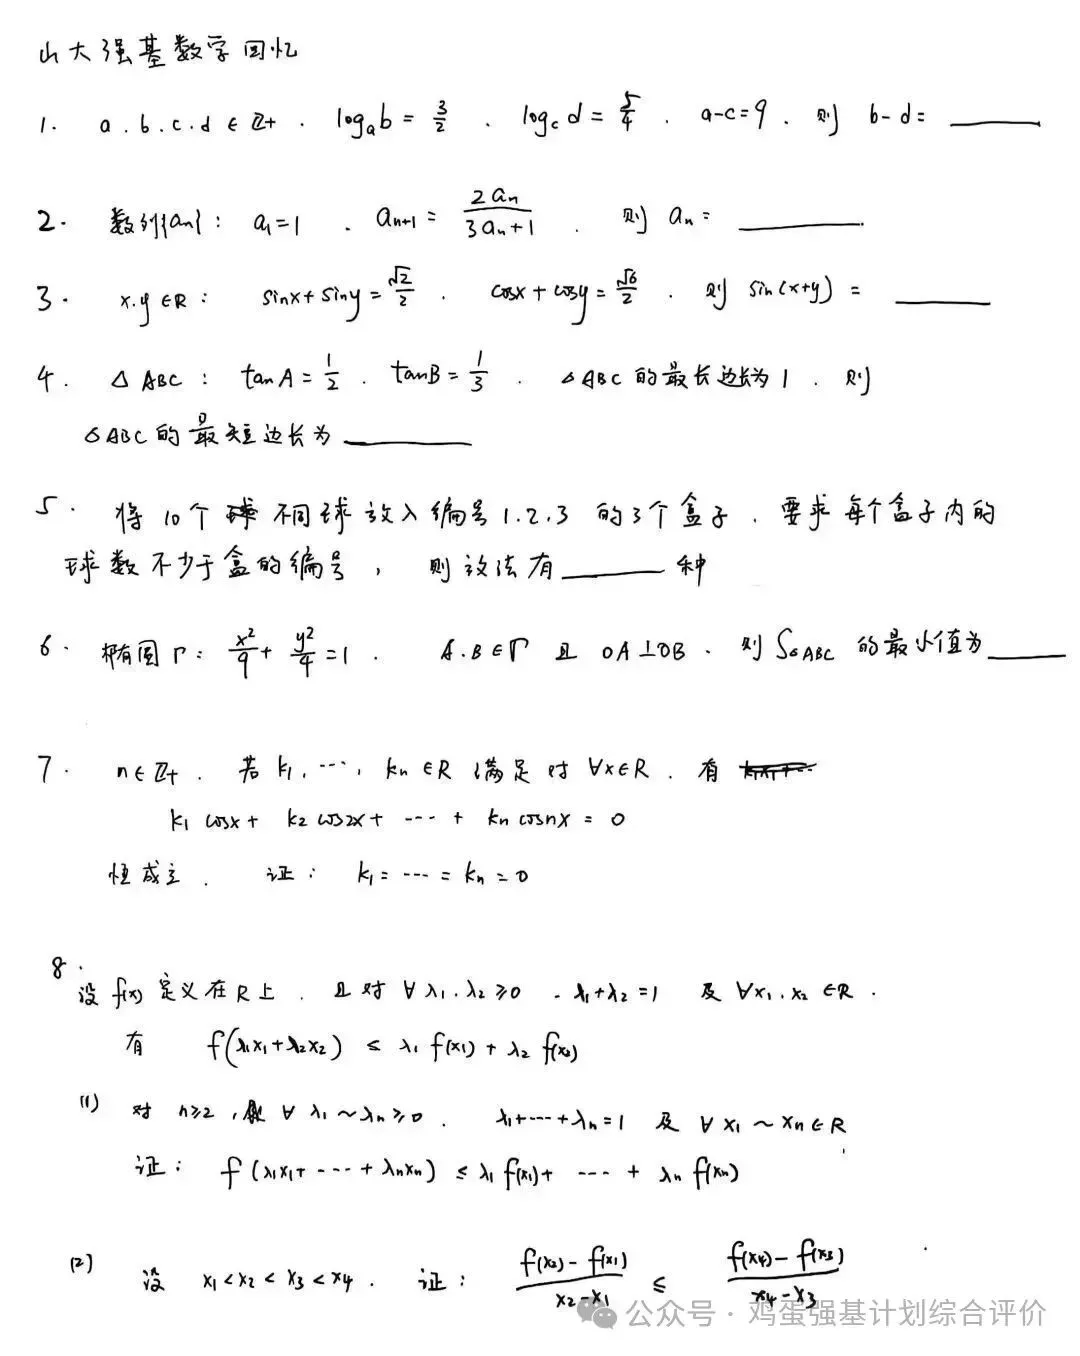 山大强基数学回忆
1. a.b.c.d ∈ Z+ . log_a b = 3/2 . log_c d = 5/4 . a-c=9 . 则 b-d= ______
2. 数列{an}: a1=1 . an+1 = 2an/(3an+1) . 则 an= ______
3. x.y∈R: sinx+siny=√2/2 . cosx+cosy=√6/2 . 则 sin(x+y) = ______
4. △ABC: tanA=1/2 . tanB=1/3 . △ABC的最长边长为1 . 则
△ABC的最短边长为 ______
5. 将10个球不同球放入编号1.2.3的3个盒子. 要求每个盒子内的
球数不少于盒的编号, 则放法有______种
6. 椭圆Γ: x²/9 + y²/4 =1 . A.B∈Γ 且 OA⊥OB . 则S△ABC的最小值为______
7. n∈Z+ . 若k1, ⋯, kn∈R满足对∀x∈R . 有
k1 cosx + k2 cos2x + ⋯ + kn cosnx = 0
恒成立. 证: k1=⋯=kn=0
8.
设f(x)定义在R上. 且对∀λ1.λ2≥0 . λ1+λ2=1 及∀x1.x2∈R.
有 f(λ1x1+λ2x2) ≤ λ1f(x1)+λ2f(x2)
(1) 对 n≥2, ∀λ1~λn≥0. λ1+⋯+λn=1 及∀x1~xn∈R
证: f(λ1x1+⋯+λnxn) ≤ λ1f(x1)+ ⋯ + λnf(xn)
(2) 设 x1<x2<x3<x4 . 证: (f(x2)-f(x1))/(x2-x1) ≤ (f(x4)-f(x3))/(x4-x3)
公众号 · 鸡蛋强基计划综合评价